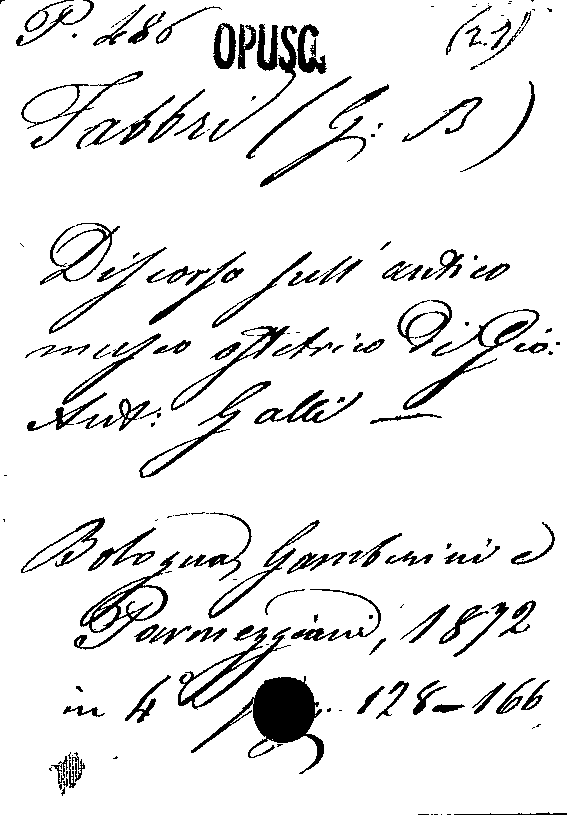 P. 486 OPUSC. (21)
Fabbri (G: B)
Discorso sull'antico
museo ostetrico di Gio:
Ant: Galli —
Bologna, Gamberini e
Parmeggiani, 1872
in 4º 128-166